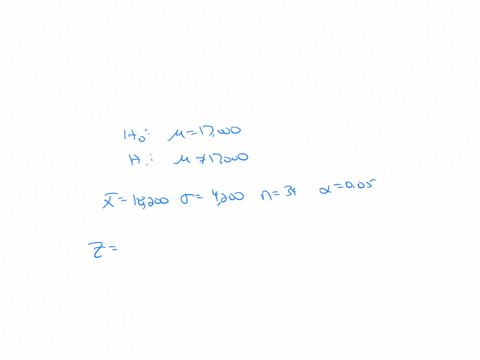 H₀: μ = 17,000
H₁: μ ≠ 17,000
x̄ = 18,200 σ = 4,200 n = 34 α = 0.05
Z =